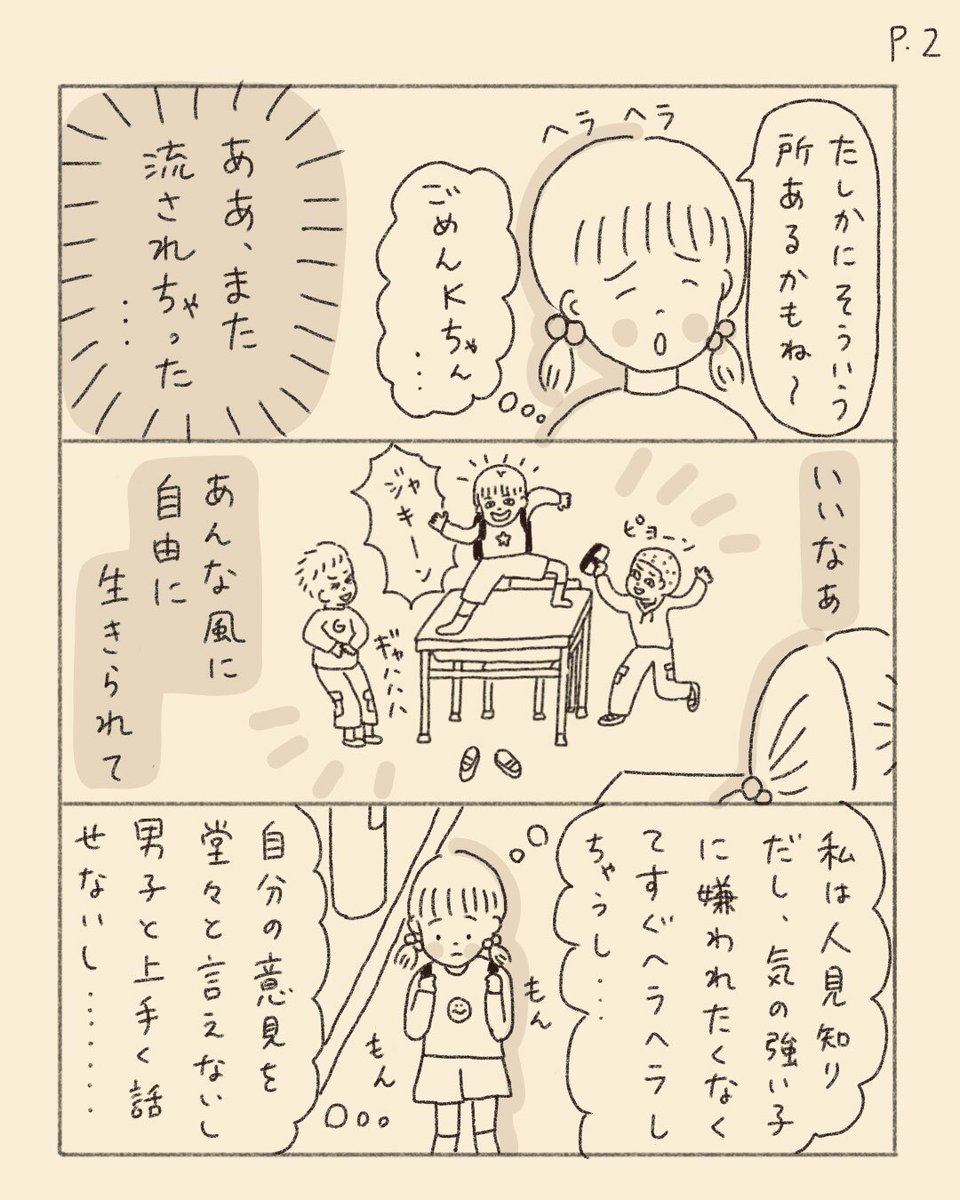 P.2
たしかにそういう
所あるかもね〜
ヘラ ヘラ
ごめんKちゃん
...
ああ、また
流されちゃった
...
いいなぁ
ピョーン
ジャ
キーン
ギャハハハ
あんな風に
自由に
生きられて
私は人見知り
だし、気の強い子
に嫌われたくなく
てすぐヘラヘラし
ちゃうし...
もん
もん
自分の意見を
堂々と言えないし
男子と上手く話
せないし.......